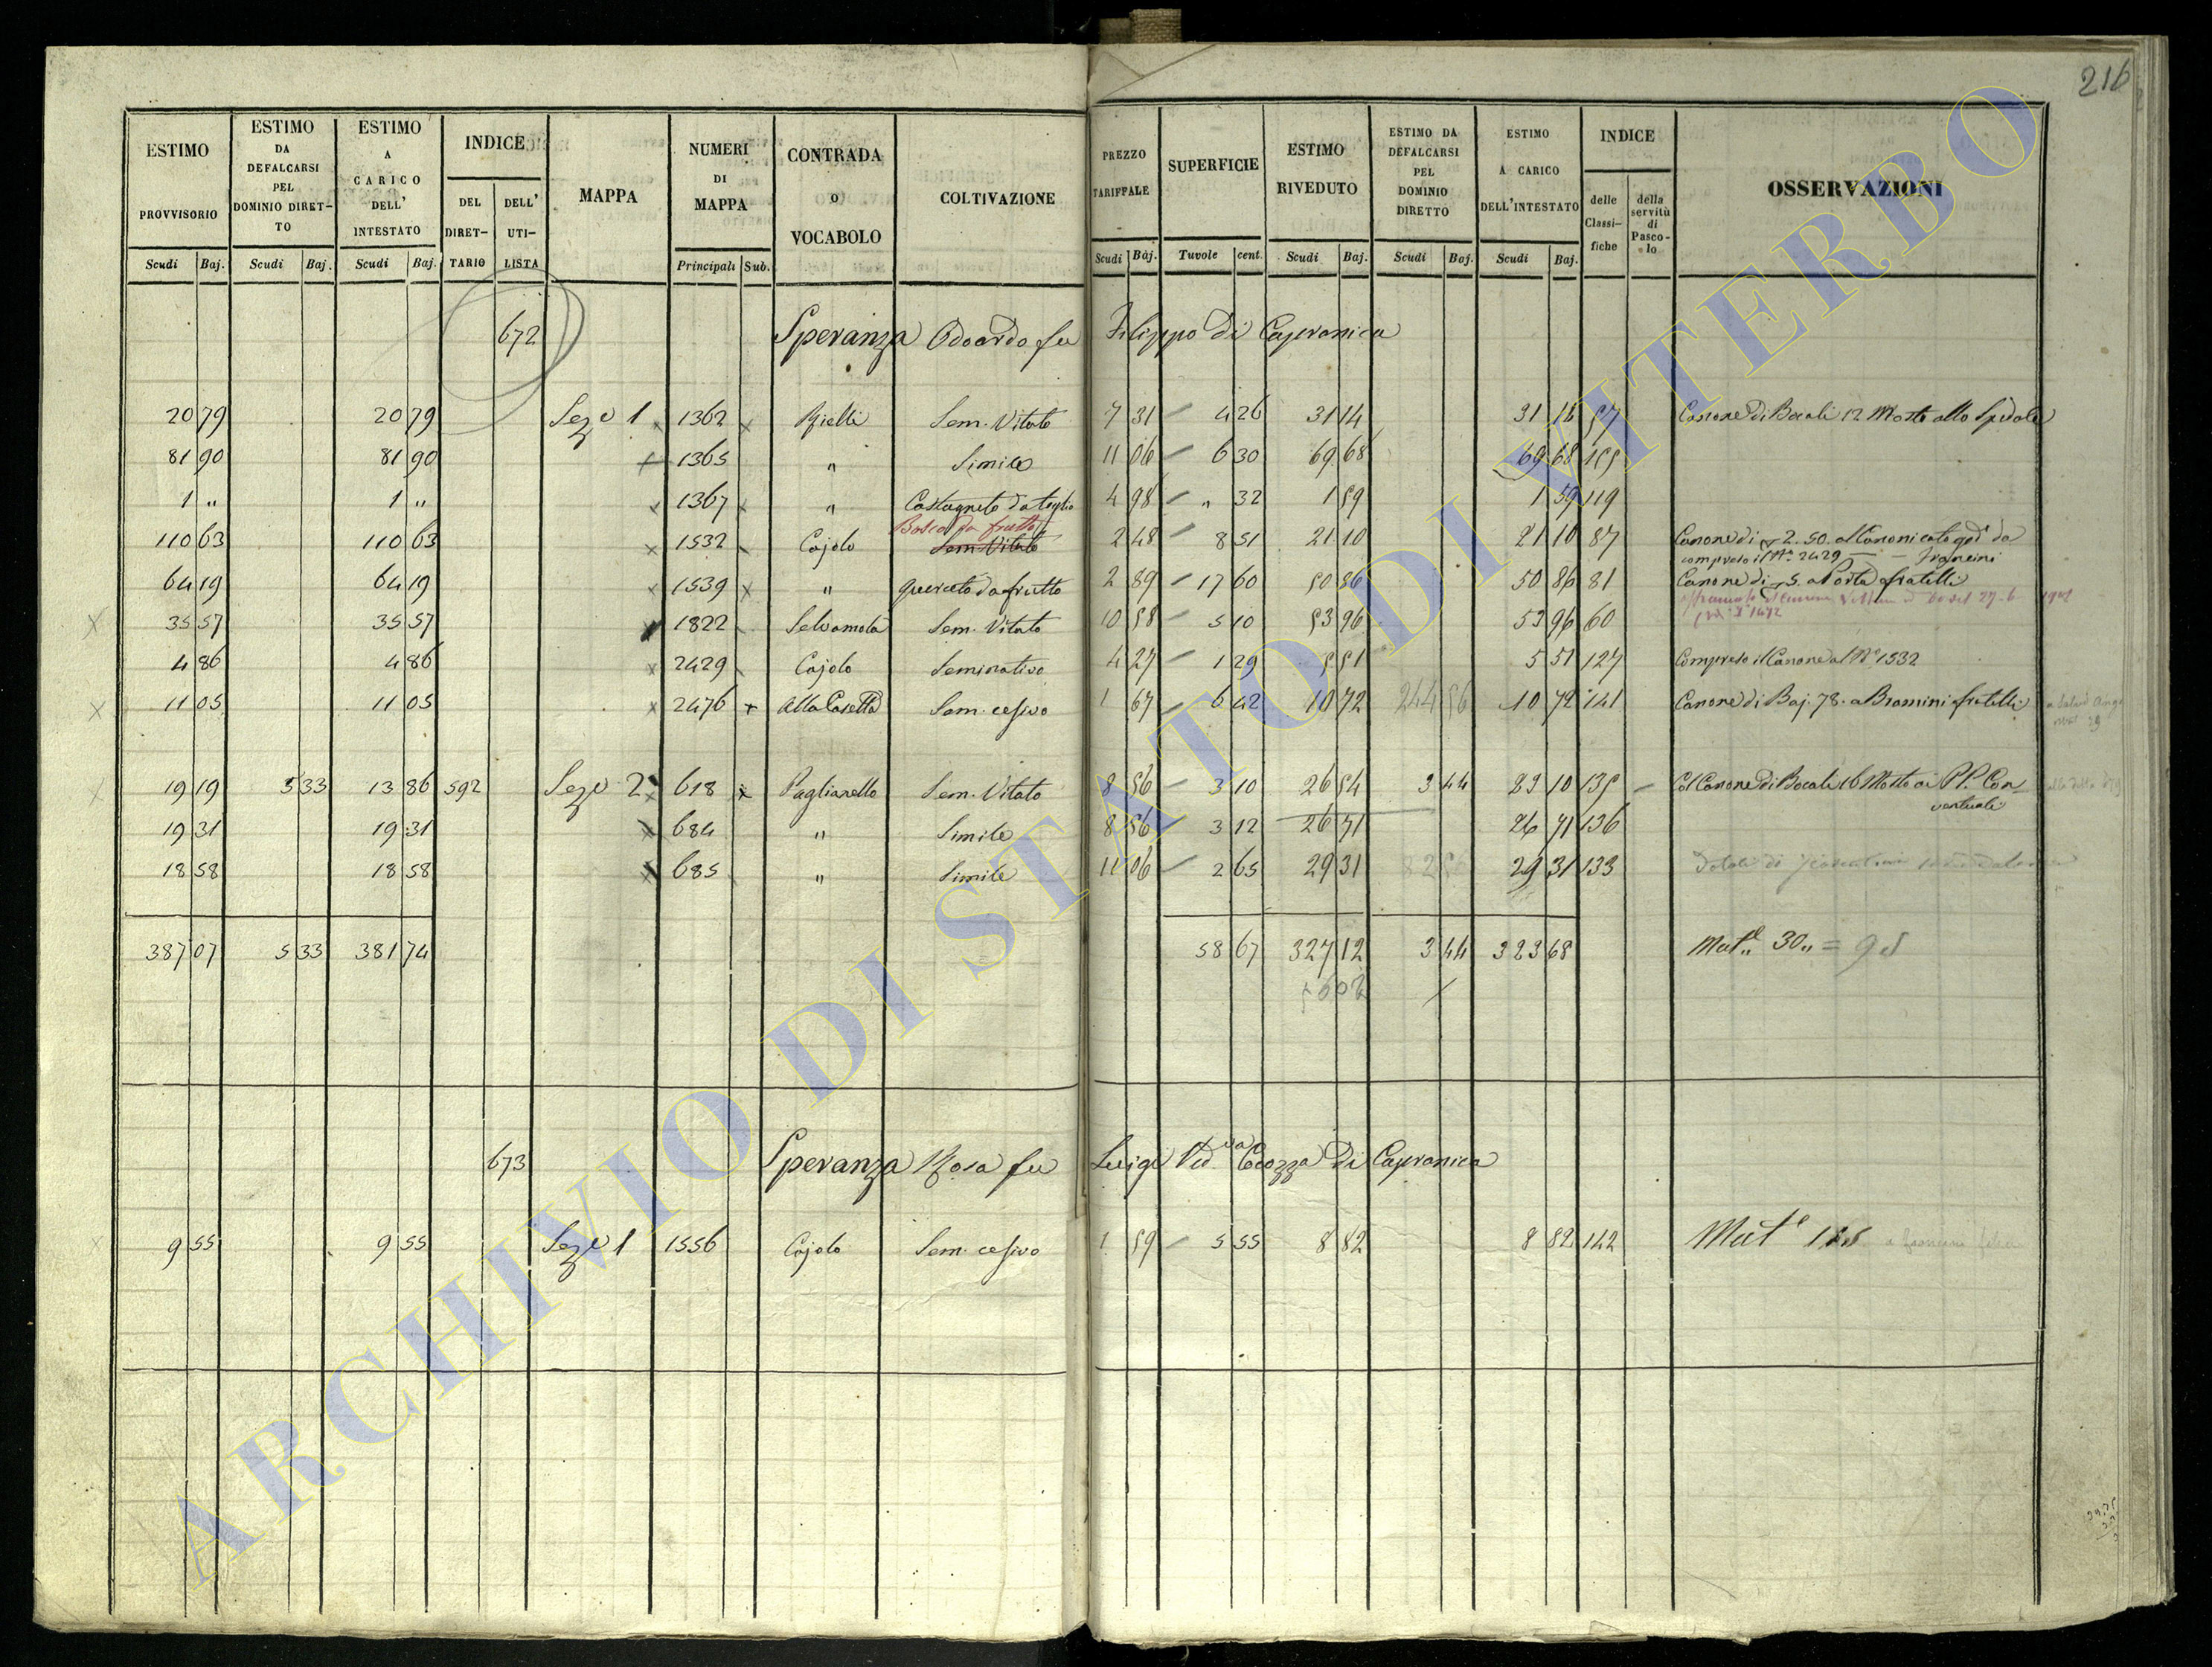 216
ESTIMO PROVVISORIO Scudi Baj.
ESTIMO DA DEFALCARSI PEL DOMINIO DIRETTO Scudi Baj.
ESTIMO A CARICO DELL' INTESTATO Scudi Baj.
INDICE DEL DIRETTARIO DELL' UTILISTA
MAPPA
NUMERI DI MAPPA Principali Sub.
CONTRADA O VOCABOLO
COLTIVAZIONE
PREZZO TARIFFALE Scudi Baj.
SUPERFICIE Tavole cent.
ESTIMO RIVEDUTO Scudi Baj.
ESTIMO DA DEFALCARSI PEL DOMINIO DIRETTO Scudi Baj.
ESTIMO A CARICO DELL'INTESTATO Scudi Baj.
INDICE delle Classifiche della servitù di Pascolo
OSSERVAZIONI
672 Speranza Odoardo fu Filippo di Capranica
20 79 20 79 Seze 1 1362 Rielli Sem. Vitato 7 31 4 26 31 14 31 16 57 Canone di Bocali 12 Mosto allo Spedale
81 90 81 90 1365 " Simile 11 06 6 30 69 68 69 68
1 " 1 " 1367 " Castagneto da taglio 4 98 " 32 1 59 1 59 119
Bosco da frutto
110 63 110 63 1532 Cajolo Sem. Vitato 2 48 8 51 21 10 21 10 87 Canone di 2.50. al Canonicato
compreso il N° 2429 — Francini
64 19 64 19 1539 " Querceto da frutto 2 89 17 60 50 86 50 86 81 Canone di 5. a Porta fratelli
35 57 35 57 1822 Selvamola Sem. Vitato 10 58 5 10 53 96 53 96 60
4 86 4 86 2429 Cajolo Seminativo 4 27 1 29 5 51 5 51 127 Compreso il Canone al N° 1532
11 05 11 05 2476 Alla Casetta Sem. cesivo 1 67 6 42 10 72 10 72 141 Canone di Baj. 78. a Bramini fratelli
19 19 5 33 13 86 592 Seze 2 618 Paglianello Sem. Vitato 8 56 3 10 26 54 3 44 23 10 135 Col Canone di Bocali 16 Mosto ai PP. Con
ventuali
19 31 19 31 684 " Simile 8 56 3 12 26 71 26 71 136
18 58 18 58 685 " Simile 11 06 2 65 29 31 29 31 133
387 07 5 33 381 74 58 67 327 12 3 44 323 68 Mat.e 30
673 Speranza Rosa fu Luigi Ved.va Cocozza di Capranica
9 55 9 55 Seze 1 1556 Cajolo Sem. cesivo 1 59 5 55 8 82 8 82 142 Mat.e
ARCHIVIO DI STATO DI VITERBO